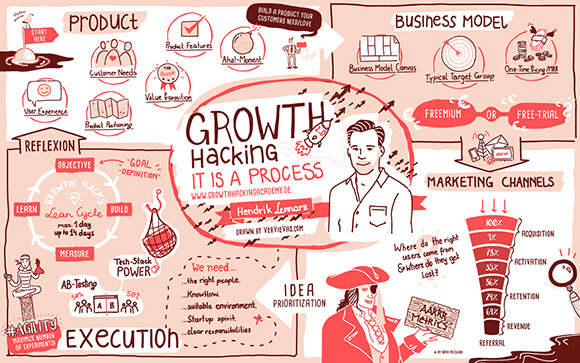 PRODUCT
START HERE
Customer Needs
Product Features
Aha!-Moment
BUILD A PRODUCT YOUR CUSTOMERS NEED/LOVE
User Experience
Product Positioning
BUSINESS MODEL
Business Model Canvas
Typical Target Group
One-Time Pricing/MRR
FREEMIUM
OR
FREE-TRIAL
GROWTH
Hacking
IT IS A PROCESS
WWW.GROWTHHACKINGACADEMY.DE
Hendrik Lennarz
DRAWN BY VERVIEVAS.COM
REFLEXION
OBJECTIVE
"GOAL-
DEFINITION"
GROWTH HACKS
LEARN
Lean Cycle
max. 1 day
up to 14 days
BUILD
MEASURE
Tech-Stack
POWER
AB-Testing
50%
50%
A
B
#AGILITY
MAXIMIZE NUMBER
OF EXPERIMENTS!
EXECUTION
We need...
...the right people.
...KnowHow.
...suitable environment.
...Startup spirit.
...clear responsibilities
IDEA
PRIORITIZATION
MARKETING CHANNELS
Where do the right
users come from
& where do they get
lost?
AARRR
METRICS
100%
ACQUISITION
ACTIVATION
RETENTION
REVENUE
REFERRAL